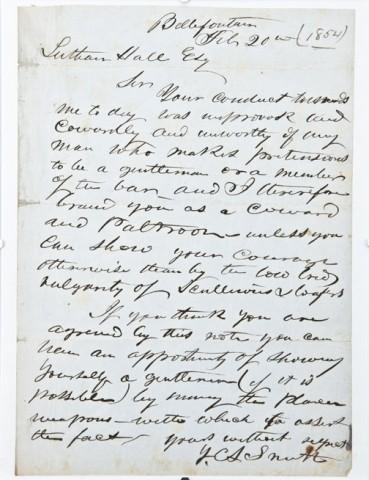 Bellefontain
Feb 20th (1854)
Luthan Hall Esq
Sir
Your conduct towards
me to day was unprovokd and
Cowardly and unworthy of any
man who makes pretensions
to be a gentleman or a member
of the bar and I therefore
brand you as a coward
and Paltroon - unless you
can show your courage
otherwise than by the low bred
vulgarity of Scullions &
If you think you are
agrieved by this note you can
have an opportunity of showing
yourself a gentleman (if it is
possible) by naming the place &
weapons - with which to assert
the fact - yours without respect
J.C. Smith